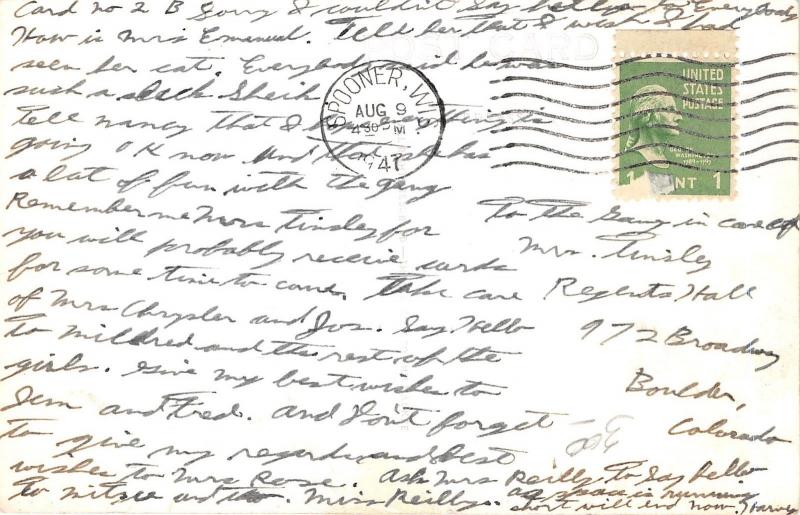 Card no 2 B Sorry I couldn't say hello to Everybody
How is Mrs Emanuel. Tell her that I wish I had
seen her cat. Everybody said he was
such a sleek Sheik
Tell nancy that I hope everything is
going OK now and that she has
a lot of fun with the gang
Remember me Mrs Tinsley for
you will probably receive cards
for some time to come. Take care
of Mrs Chrysler and Jos. Say Hello
to Mildred and the rest of the
girls. Give my best wishes to
Jem and Fred. And Don't forget
to give my regards and best
wishes to Mrs Rose. Ask Mrs Reilly to say hello
to mitzie and Miss Reilly. as space is running
short will end now. Harvey
POST CARD
SPOONER, WIS
AUG 9
4 30 PM
1947
UNITED
STATES
POSTAGE
GEORGE
WASHINGTON
1789-1797
1 NT 1
To the Gang in care of
Mrs. Tinsley
Regents Hall
972 Broadway
Boulder,
Colorado